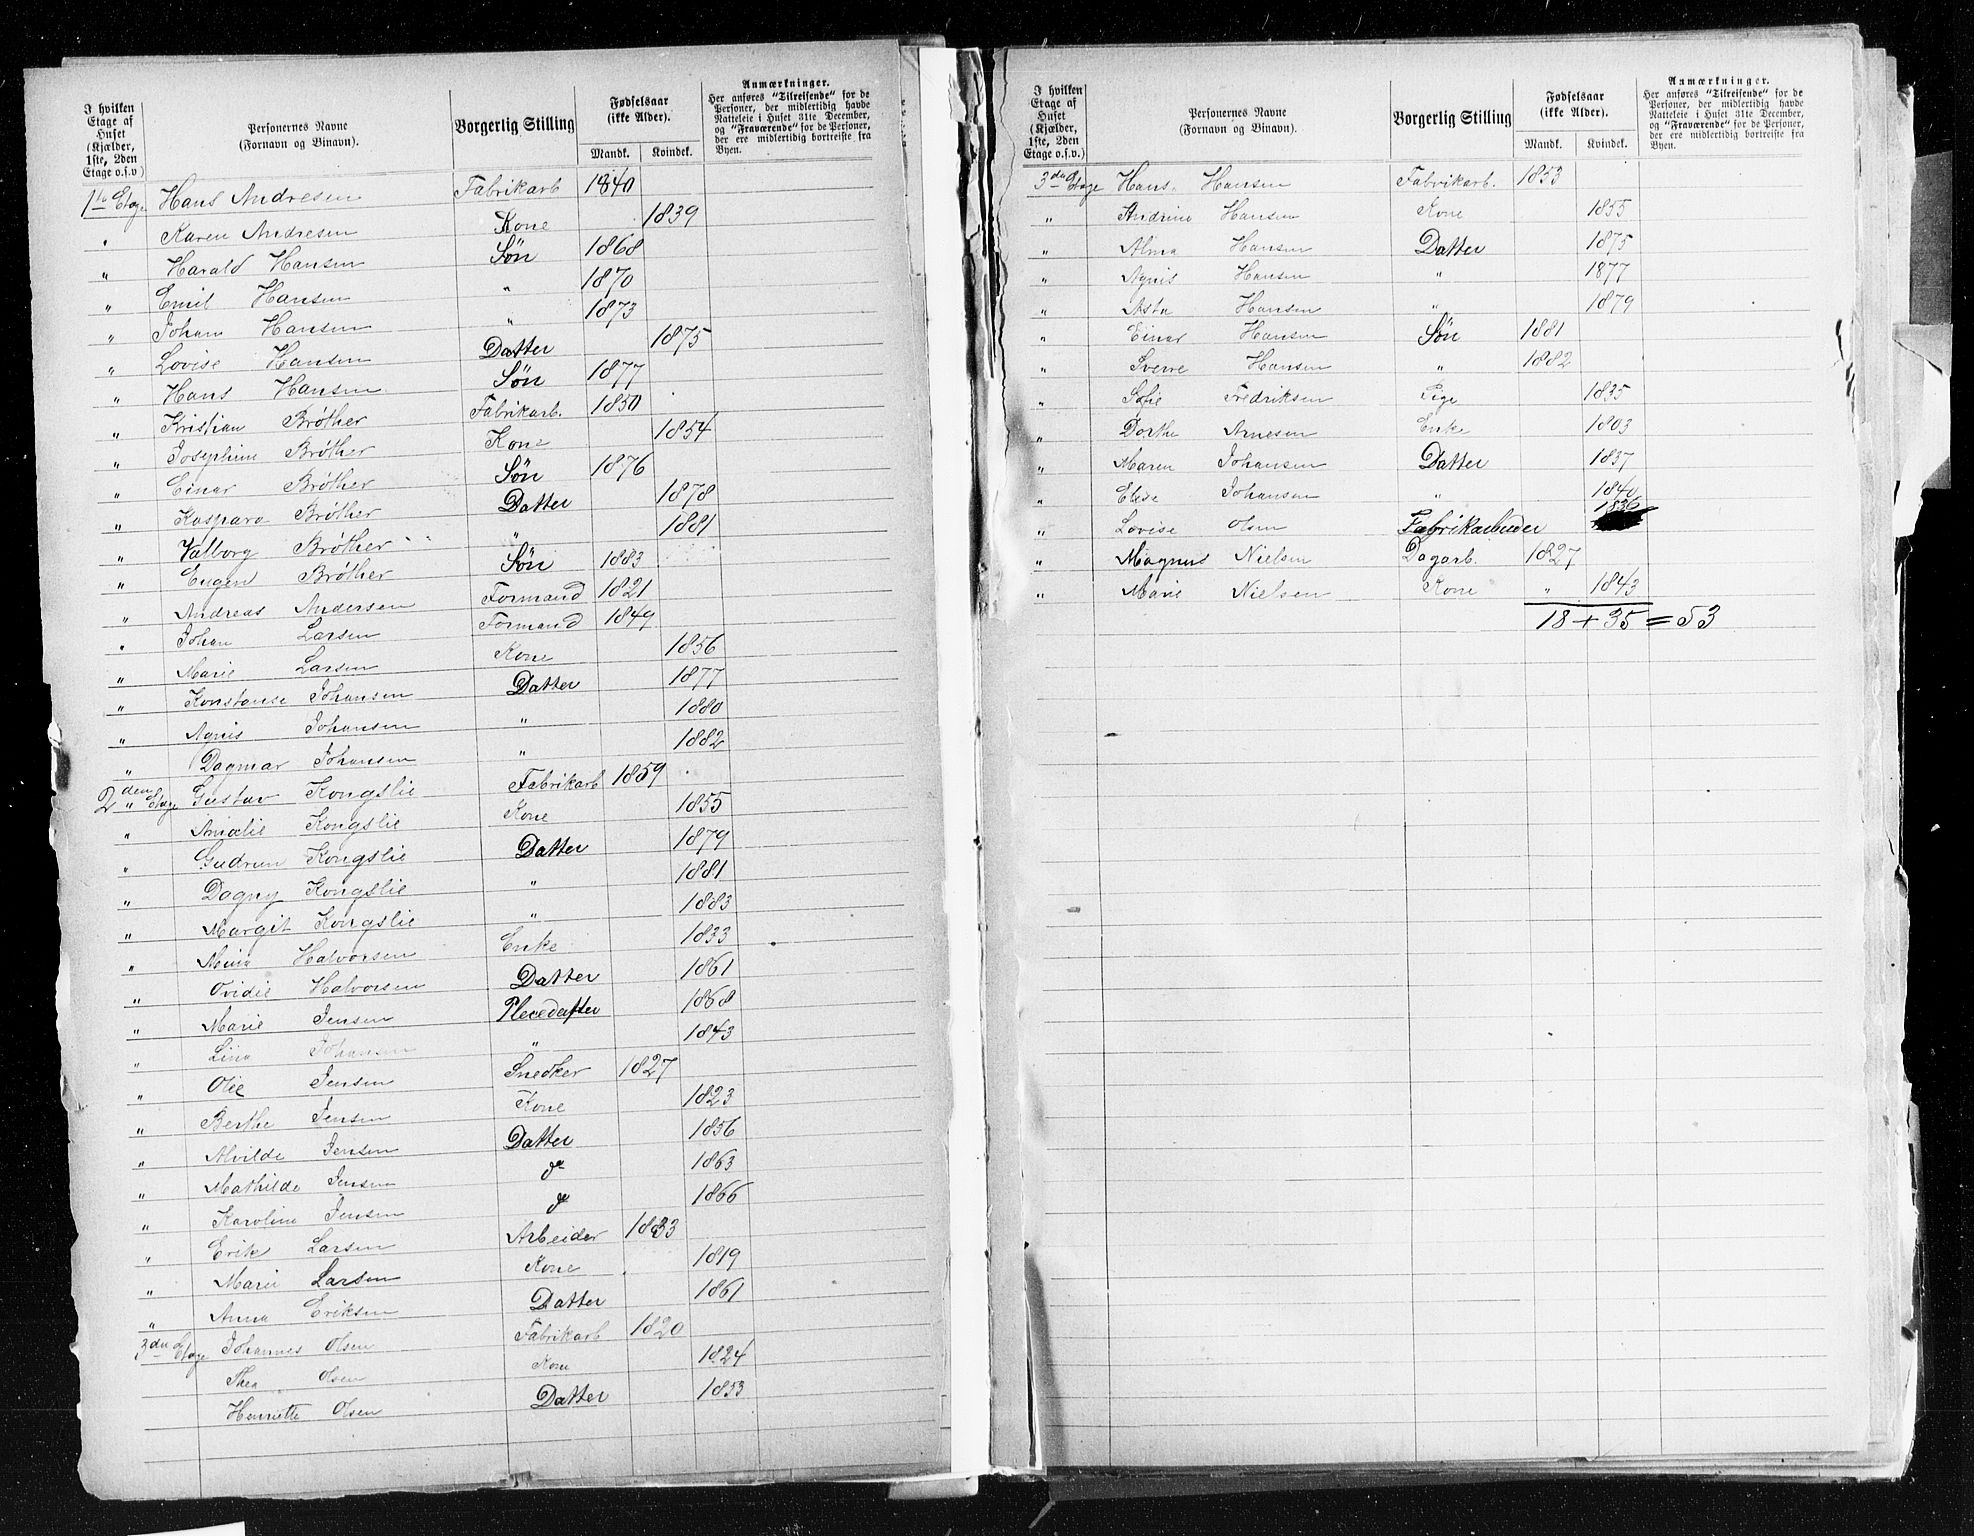 I hvilken Etage af Huset (Kjælder, 1ste, 2den Etage o.s.v) | Personernes Navne (Fornavn og Binavn). | Borgerlig Stilling | Fødselsaar (ikke Alder). Mandk. | Kvindek. | Anmærkninger. Her anføres "Tilreisende" for de Personer, der midlertidig havde Natteleie i Huset 31te December, og "Fraværende" for de Personer, der ere midlertidig bortreiste fra Byen.
1te Etage Hans Andresen Fabrikarb 1840
" Karen Andresen Kone 1839
" Harald Hansen Søn 1868
" Emil Hansen " 1870
" Johan Hansen " 1873
" Lovise Hansen Datter 1875
" Hans Hansen Søn 1877
" Kristian Brøther Fabrikarb. 1850
" Josephine Brøther Kone 1854
" Einar Brøther Søn 1876
" Kaspara Brøther Datter 1878
" Valborg Brøther " 1881
" Eugen Brøther Søn 1883
" Andreas Andersen Formand 1821
" Johan Larsen Formand 1849
" Marie Larsen Kone 1856
" Konstanse Johansen Datter 1877
" Agnis Johansen " 1880
" Dagmar Johansen " 1882
2den Etage Gustav Kongslie Fabrikarb 1859
" Amalie Kongslie Kone 1855
" Gudrun Kongslie Datter 1879
" Dagny Kongslie " 1881
" Margit Kongslie " 1883
" Mina Halvorsen Enke 1833
" Ovidie Halvorsen Datter 1861
" Marie Jensen Pleiedatter 1868
" Lina Johansen " 1843
" Ole Jensen Snedker 1827
" Berthe Jensen Kone 1823
" Alvilde Jensen Datter 1856
" Mathilde Jensen do 1863
" Karoline Jensen do 1866
" Erik Larsen Arbeider 1833
" Marie Larsen Kone 1819
" Anna Eriksen Datter 1861
3die Etage Johannes Olsen Fabrikarb 1820
Thea Olsen Kone 1824
Henriette Olsen Datter 1853
I hvilken Etage af Huset (Kjælder, 1ste, 2den Etage o.s.v.) | Personernes Navne (Fornavn og Binavn). | Borgerlig Stilling | Fødselsaar (ikke Alder). Mandk. | Kvindek. | Anmærkninger. Her anføres "Tilreisende" for de Personer, der midlertidig havde Natteleie i Huset 31te December, og "Fraværende" for de Personer, der ere midlertidig bortreiste fra Byen.
3die Etage Hans Hansen Fabrikarb. 1853
" Andrine Hansen Kone 1855
" Alma Hansen Datter 1875
" Agnis Hansen " 1877
" Asta Hansen " 1879
" Einar Hansen Søn 1881
" Sverre Hansen " 1882
" Sofie Fredriksen Pige 1835
" Dorthe Arnesen Enke 1803
" Maren Johansen Datter 1837
" Elise Johansen " 1840
" Lovise Olsen Fabrikarbeider 1836
" Magnus Nielsen Dagarb. 1827
" Marie Nielsen Kone " 1843
18 + 35 = 53